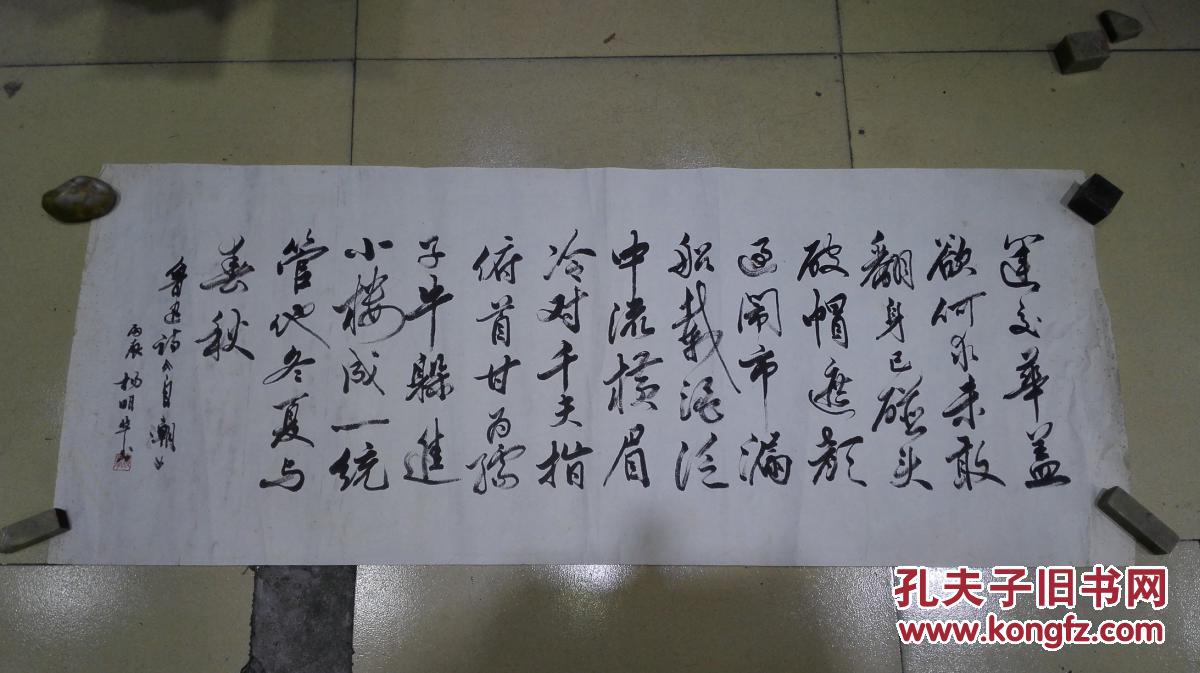 運交華盖
欲何求未敢
翻身已碰头
破帽遮颜
过闹市漏
船載酒泛
中流横眉
冷对千夫指
俯首甘为孺
子牛躲進
小楼成一统
管他冬夏与
春秋
鲁迅诗《自潮》
丙辰 杨明华书
孔夫子旧书网
www.kongfz.com